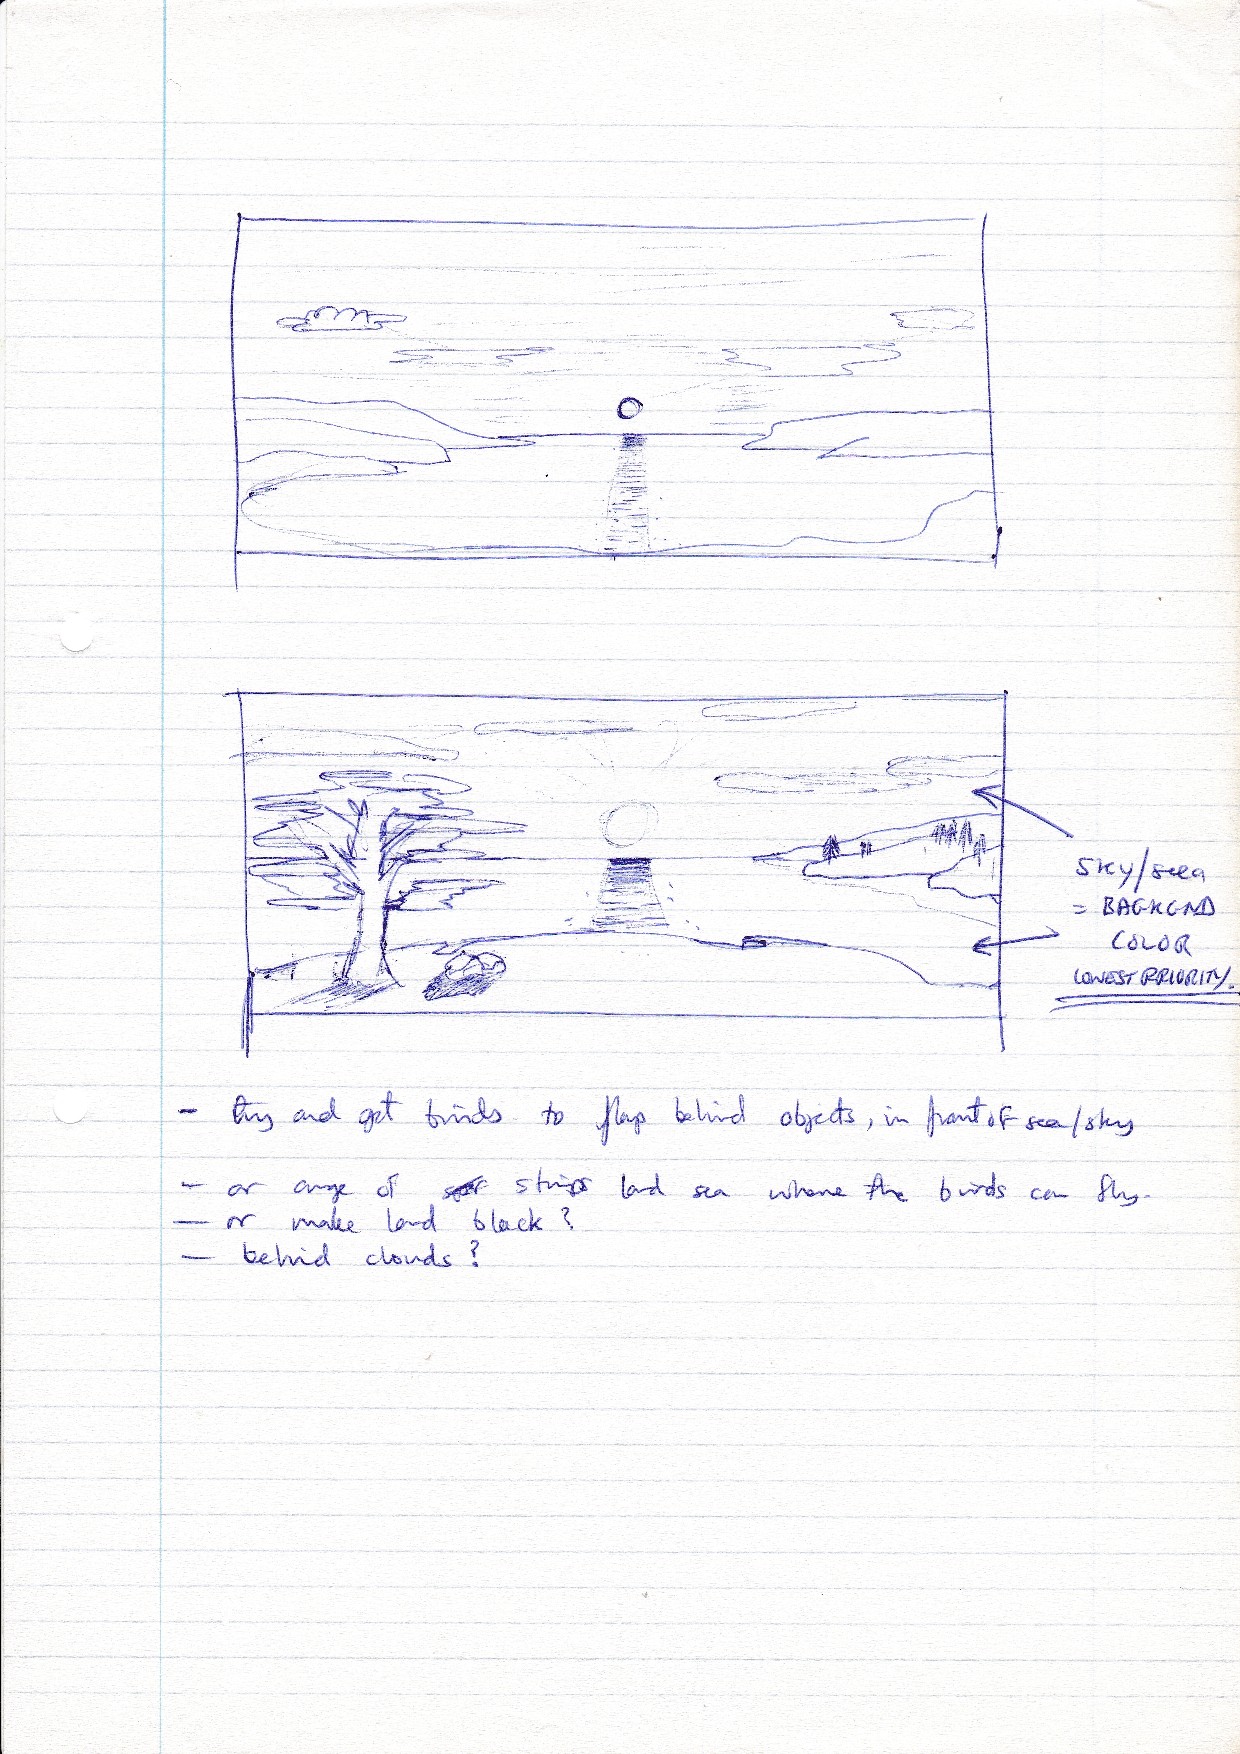 SKY/sea
= BACKGND
COLOR
LOWEST PRIORITY.
- try and get birds to flap behind objects, in front of sea/sky
- or range of strips land sea where the birds can fly.
- or make land black?
- behind clouds?